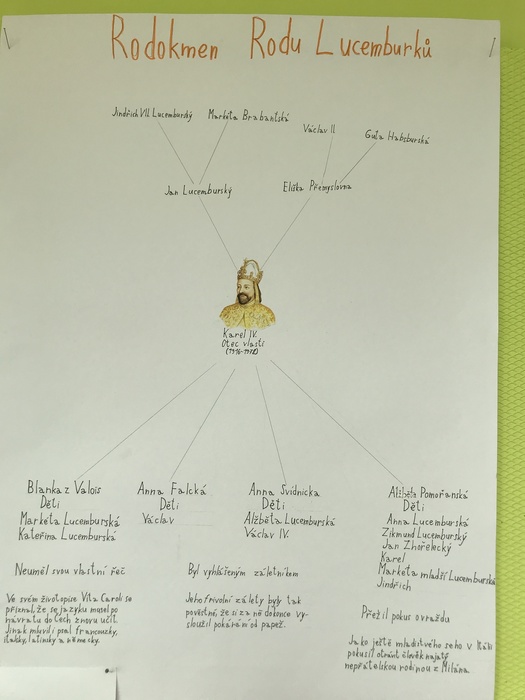 Rodokmen Rodu Lucemburků
Jindřich VII. Lucemburský
Markéta Brabantská
Václav II
Guta Habsburská
Jan Lucemburský
Eliška Přemyslovna
Karel IV.
Otec vlasti
Blanka z Valois
Děti
Markéta Lucemburská
Kateřina Lucemburská
Anna Falcká
Děti
Václav
Anna Svídnická
Děti
Alžběta Lucemburská
Václav IV.
Alžběta Pomořanská
Děti
Anna Lucemburská
Zikmund Lucemburský
Jan Zhořelecký
Karel
Markéta mladší Lucemburská
Jindřich
Neuměl svou vlastní řeč
Ve svém životopise Vita Caroli se
přiznal, že se jazyku musel po
návratu do Čech znovu učit.
Jinak mluvil i psal francouzky,
italsky, latinsky a německy.
Byl vyhlášeným záletníkem
Jeho frivolní zálety byly tak
pověstné, že si za ně dokonce vy-
sloužil pokárání od papež.
Přežil pokus o vraždu
Jako ještě mladistvého se ho v Itálii
pokusil otrávit člověk najatý
nepřátelskou rodinou z Milána